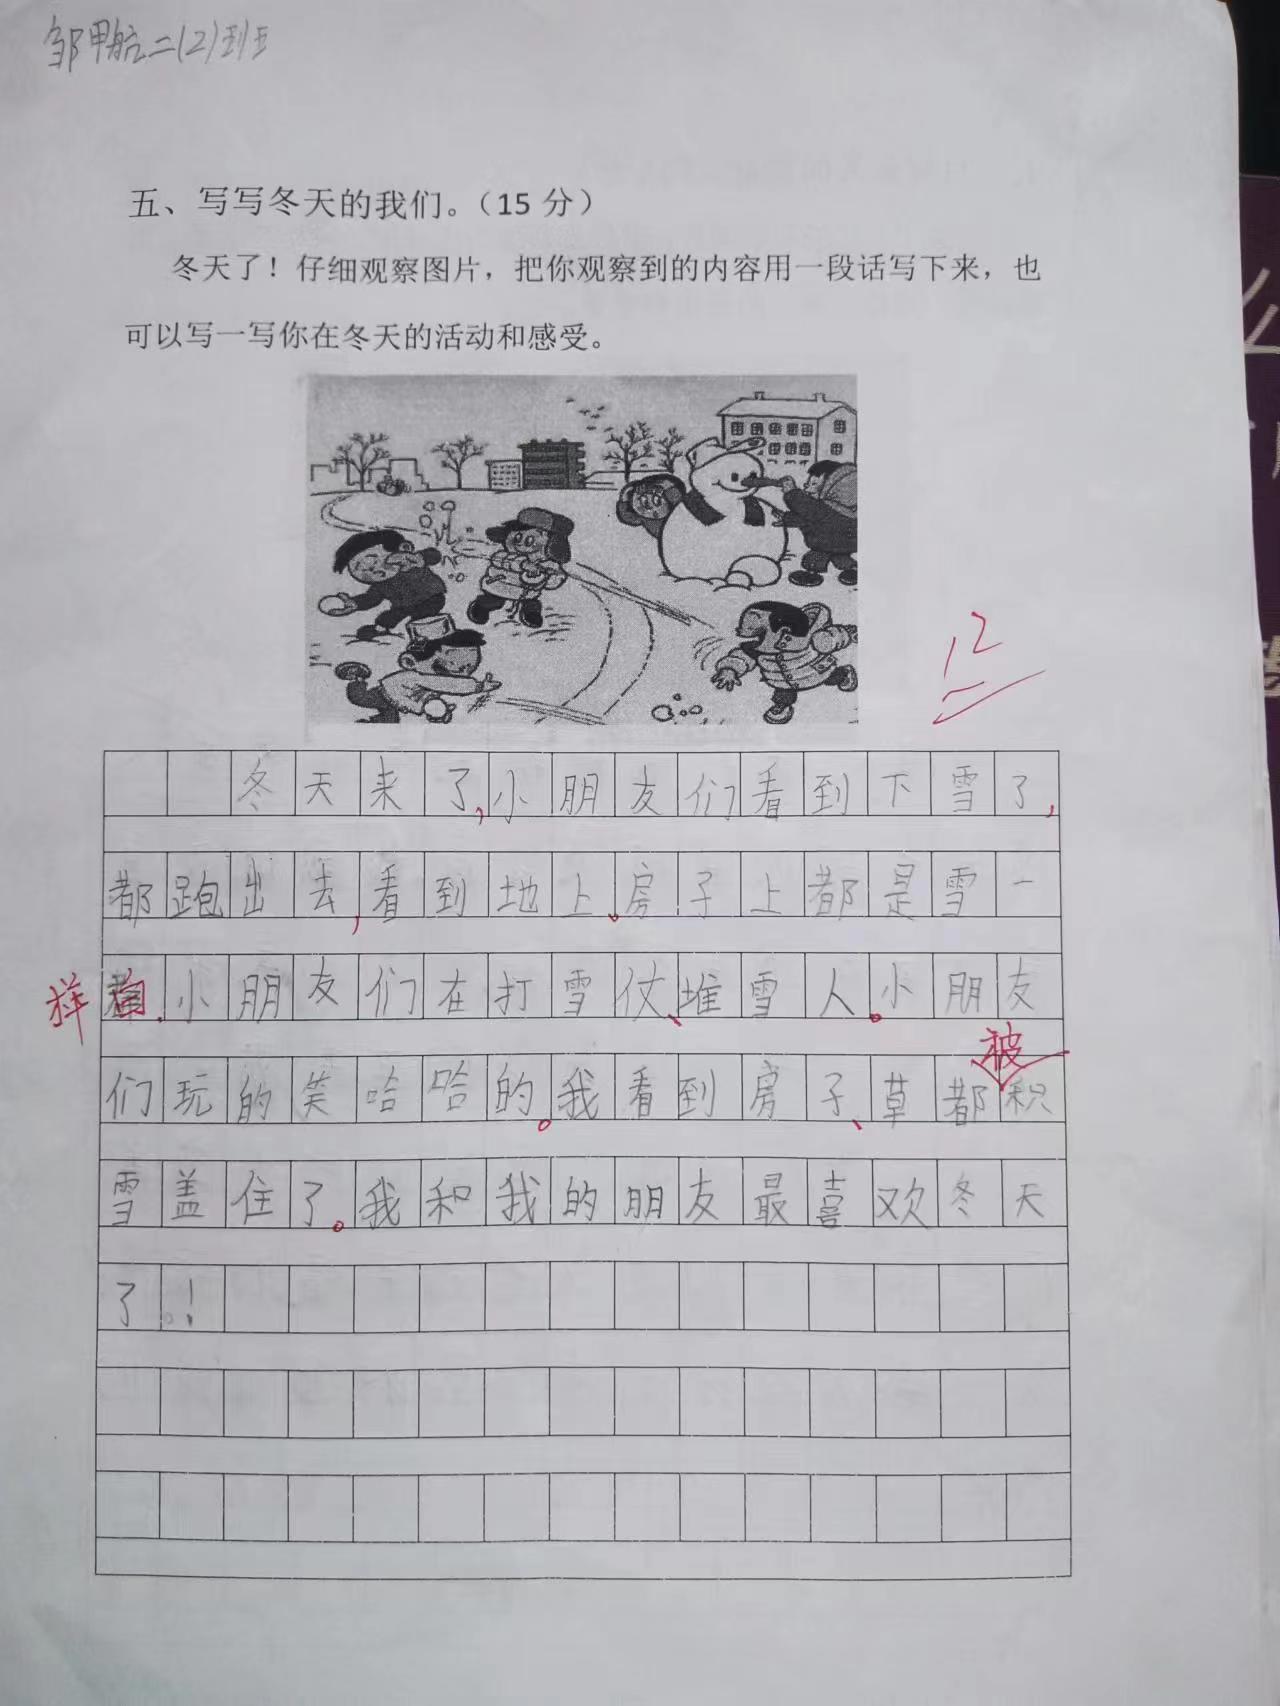 邹甲航二(2)班
五、写写冬天的我们。（15 分）
冬天了！仔细观察图片，把你观察到的内容用一段话写下来，也
可以写一写你在冬天的活动和感受。
12
冬天来了,小朋友们看到下雪了,
都跑出去,看到地上。房子上都是雪一
样白.小朋友们在打雪仗、堆雪人。小朋友
被
们玩的笑哈哈的。我看到房子、草都积
雪盖住了。我和我的朋友最喜欢冬天
了。！